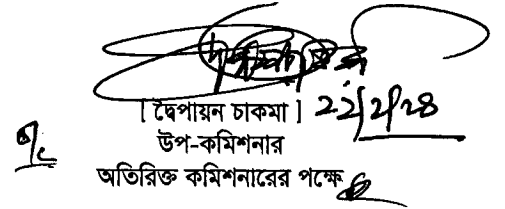 [ দ্বৈপায়ন চাকমা ] ২২/২/২৪
উপ-কমিশনার
অতিরিক্ত কমিশনারের পক্ষে